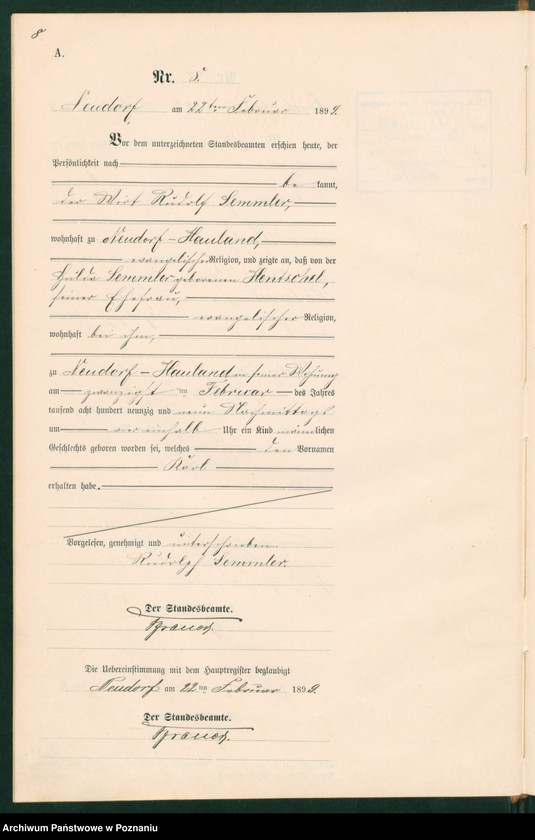 8
A.
Nr. 5.
Neudorf am 22ten Februar 1899.
Vor dem unterzeichneten Standesbeamten erschien heute, der
Persönlichkeit nach
be kannt,
der Wirt Rudolf Semmler,
wohnhaft zu Neudorf-Hauland,
evangelischer Religion, und zeigte an, daß von der
Hulda Semmler geborenen Hentschel,
seiner Ehefrau,
evangelischer Religion,
wohnhaft bei ihm,
zu Neudorf-Hauland in seiner Wohnung
am zwanzigsten Februar des Jahres
tausend acht hundert neunzig und neun Nachmittags
um vier einhalb Uhr ein Kind männlichen
Geschlechts geboren worden sei, welches den Vornamen
Karl
erhalten habe.
Vorgelesen, genehmigt und unterschrieben
Rudolph Semmler.
Der Standesbeamte.
Die Uebereinstimmung mit dem Hauptregister beglaubigt
Neudorf am 22ten Februar 1899.
Der Standesbeamte.
Archiwum Państwowe w Poznaniu